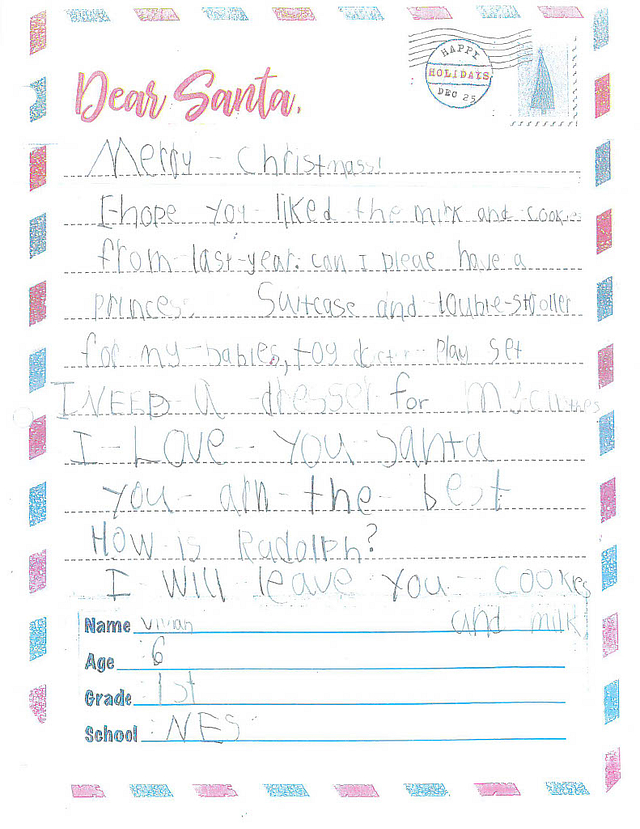 Dear Santa,
HAPPY
HOLIDAYS
DEC 25
Merry - Christmass!
I hope you liked the milk and cookies
from last year. can I pleae have a
princess Suitcase and double-stroller
for my babies, toy doctor play set
I NEED A dresser for my clothes
I Love You santa
you arn the best
How is Rudolph?
I will leave you cookies
and milk
Name Vivian
Age 6
Grade 1st
School NES